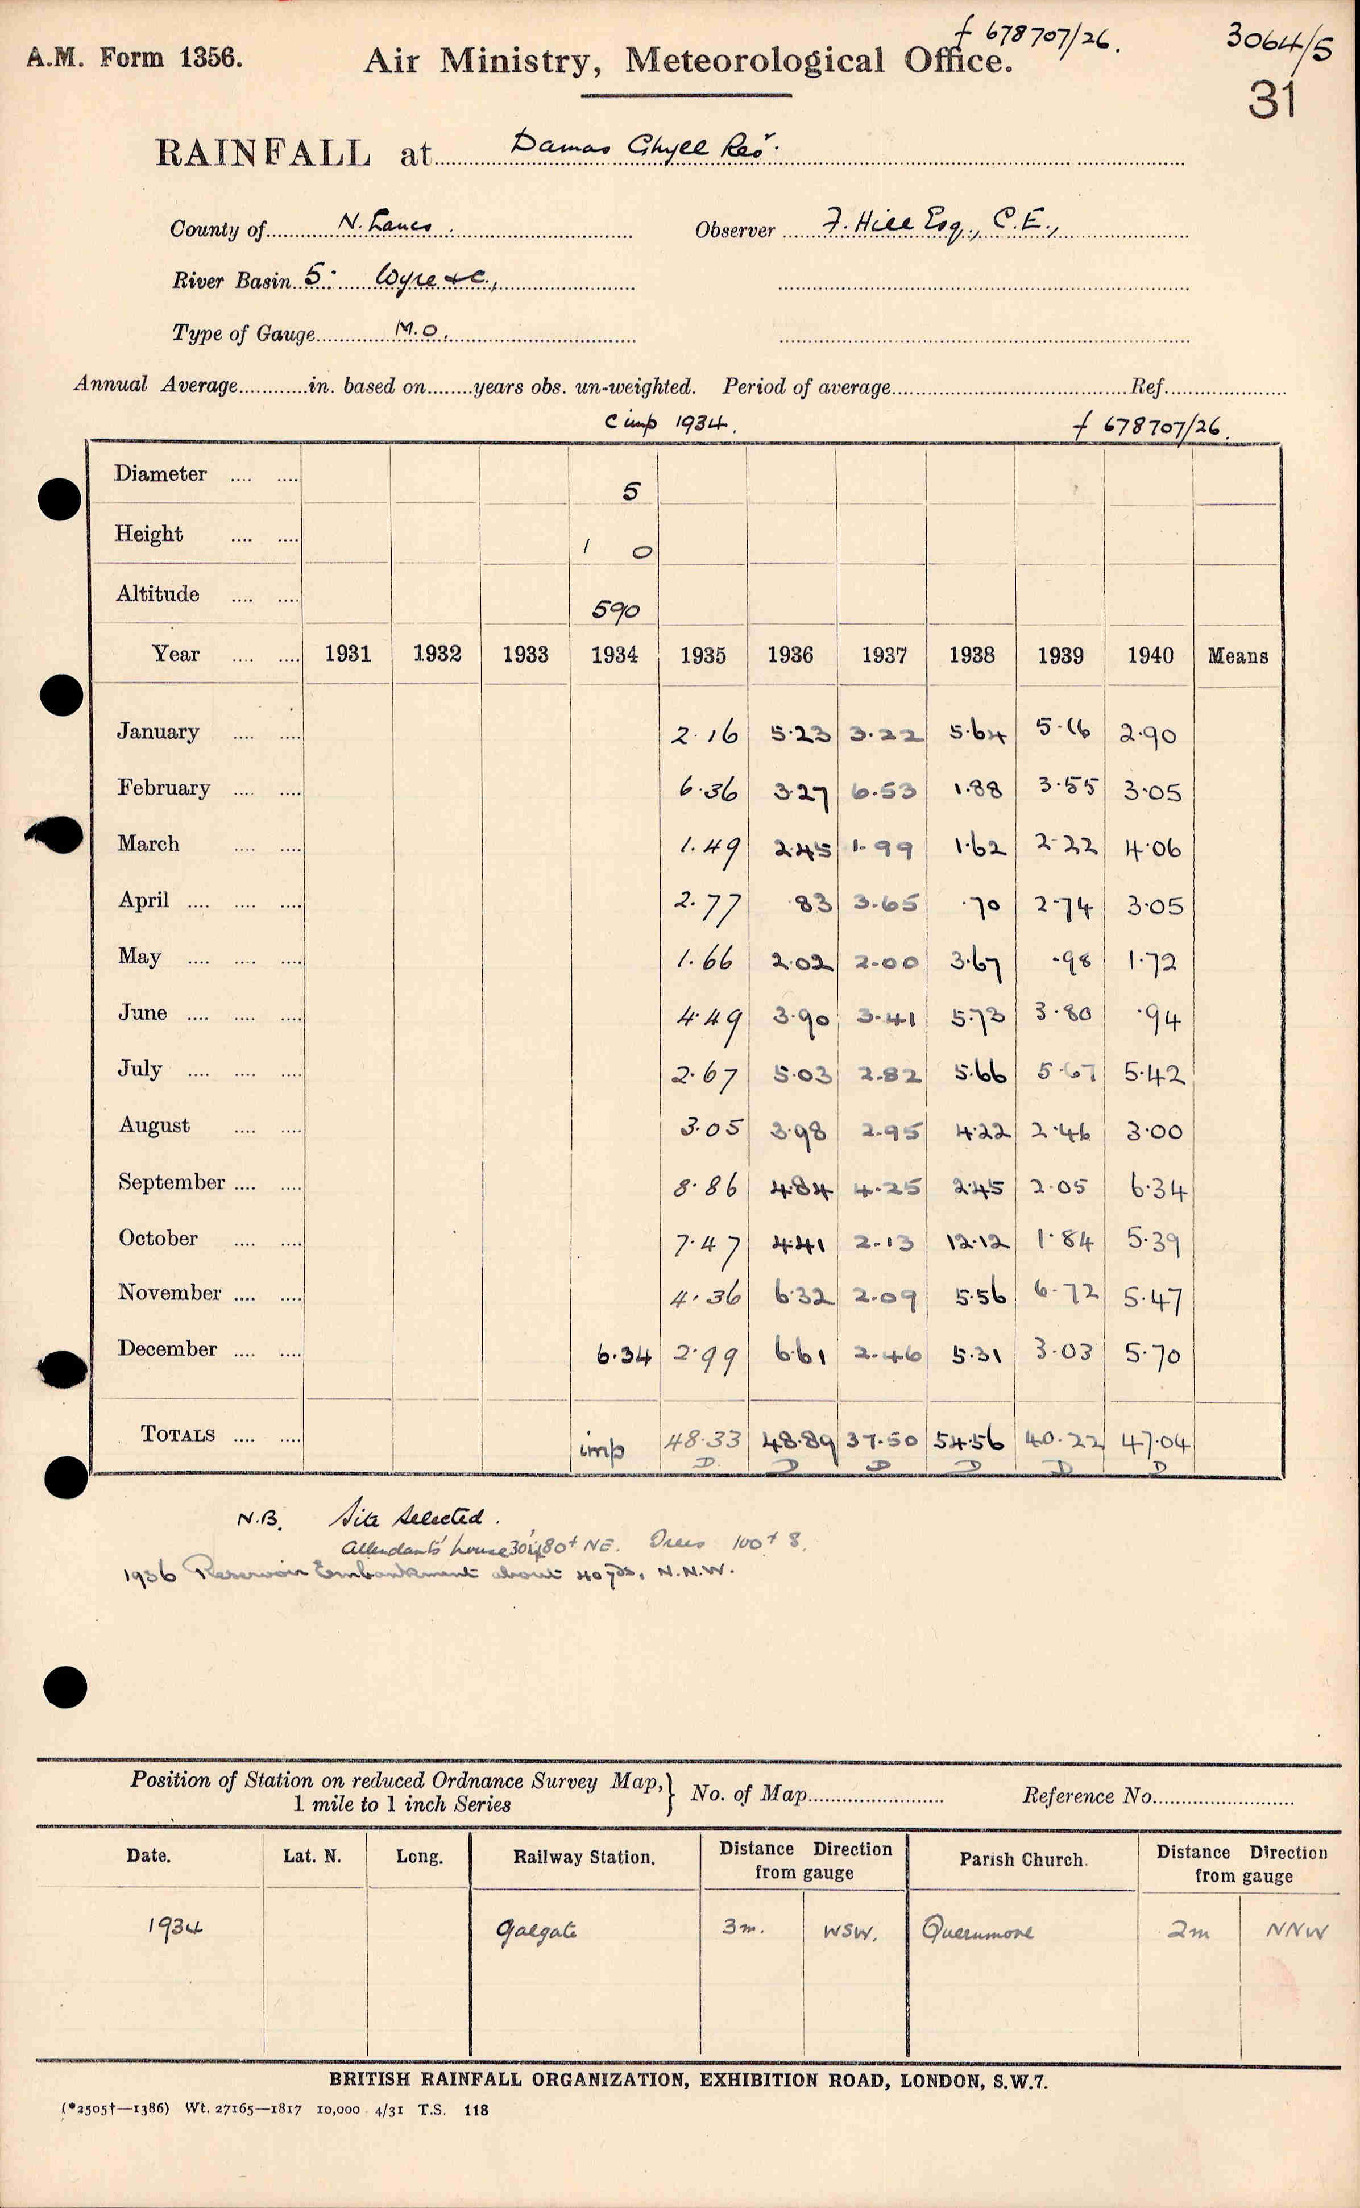 f 678707/26. 3064/5
A.M. Form 1356. Air Ministry, Meteorological Office.
31
RAINFALL at Damas Ghyll Resr.
County of N. Lancs. Observer F. Hill Esq., C.E.,
River Basin 5: Wyre &c.,
Type of Gauge M.O.
Annual Average in. based on years obs. un-weighted. Period of average Ref.
C imp 1934. f 678707/26.
Diameter 5
Height 1 0
Altitude 590
Year 1931 1932 1933 1934 1935 1936 1937 1938 1939 1940 Means
January 2.16 5.23 3.22 5.64 5.16 2.90
February 6.36 3.27 6.53 1.88 3.55 3.05
March 1.49 2.45 1.99 1.62 2.22 4.06
April 2.77 .83 3.65 .70 2.74 3.05
May 1.66 2.02 2.00 3.67 .98 1.72
June 4.49 3.90 3.41 5.73 3.80 .94
July 2.67 5.03 2.82 5.66 5.67 5.42
August 3.05 3.98 2.95 4.22 2.46 3.00
September 8.86 4.84 4.25 2.45 2.05 6.34
October 7.47 4.41 2.13 12.12 1.84 5.39
November 4.36 6.32 2.09 5.56 6.72 5.47
December 6.34 2.99 6.61 2.46 5.31 3.03 5.70
TOTALS imp 48.33 48.89 37.50 54.56 40.22 47.04
D D D D D D
N.B. Site selected.
Attendants' house 80+ NE. Trees 100+ S.
1936 Reservoir Embankment about 40 yds, N.N.W.
Position of Station on reduced Ordnance Survey Map, } No. of Map Reference No.
1 mile to 1 inch Series
Date. Lat. N. Long. Railway Station. Distance Direction from gauge Parish Church. Distance Direction from gauge
1934 Galgate 3m. WSW. Quernmore 2m NNW
BRITISH RAINFALL ORGANIZATION, EXHIBITION ROAD, LONDON, S.W.7.
(*2505†—1386) Wt. 27165—1817 10,000 4/31 T.S. 118